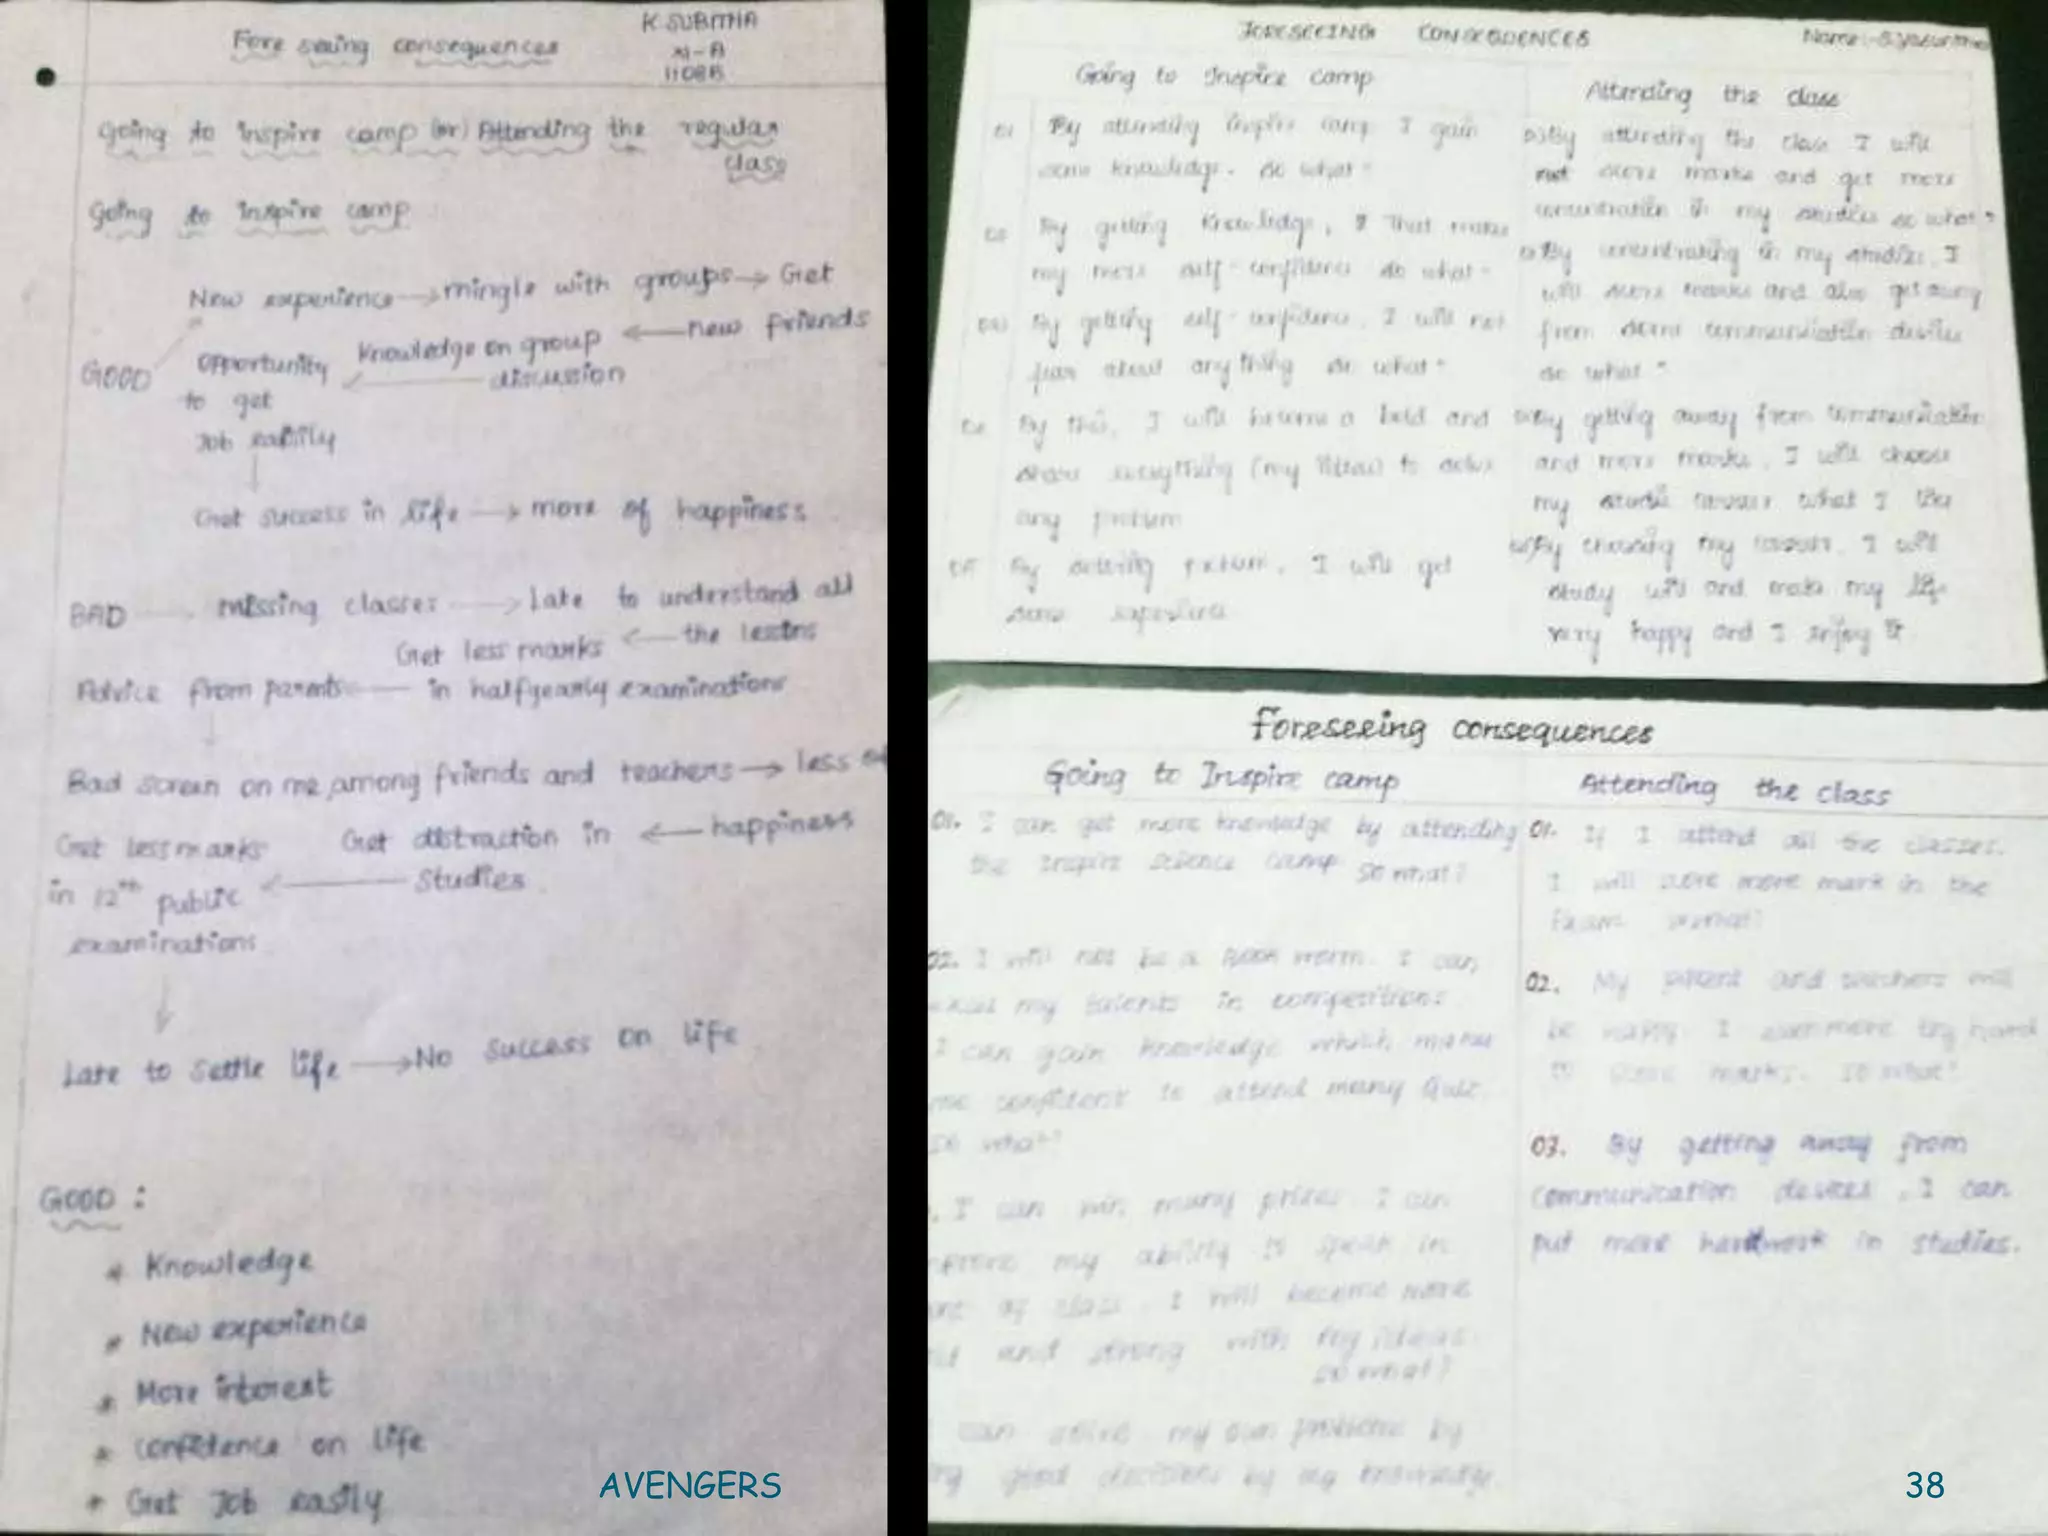 K SUBITHA
Fore seeing consequences
XI-A
1108B
Going to inspire camp (or) Attending the regular
class
Going to Inspire camp :
New experience → mingle with groups → Get
GOOD Opportunity Knowledge on group ← new friends
discussion
to get
Job easily
Get success in life → more of happiness
BAD missing classes → Late to understand all
Get less marks ← the lessons
Advice from parents in halfyearly examinations
Bad screen on me among friends and teachers → less of
Get less marks Get distraction in ← happiness
in 12th public studies
examinations
Late to settle life → No success on life
GOOD :
* Knowledge
* New experience
* More interest
* confidence on life
* Get Job easily
FORESEEING CONSEQUENCES Name:-
Going to Inspire camp
Attending the class
01 By attending inspire camp I gain
some knowledge. so what?
By getting knowledge, That makes
my more self-confidence so what?
By getting self-confidence, I will not
fear about anything so what?
By this, I will become a bold and
share everything (my ideas) to solve
any problem
By solving problem, I will get
some experience
By attending the class I will
score marks and get more
concentration in my studies so what?
By concentrating in my studies, I
will score marks and also get away
from some communication devices
so what?
By getting away from communication
and more marks, I will choose
my studie what I like
By choosing my I will
study well and make my life
very happy and I enjoy it
Foreseeing consequences
Going to Inspire camp
Attending the class
01. I can get more knowledge by attending
the Inspire science camp so what?
02. I will not be a Book worm. I can
my talents in competitions
I can gain knowledge which makes
me confident to attend many Quiz.
so what?
I can win many prizes I can
improve my ability to speak in
of class. I will become more
and strong with my ideas
so what?
can solve my own problems by
good decisions by my knowledge
01. If I attend all the classes.
I will score more mark in the
Exam so what?
02. My parent and teachers will
be happy. I even more try hard
to score marks. so what?
03. By getting away from
communication devices, I can
put more hardwork in studies.
AVENGERS
38